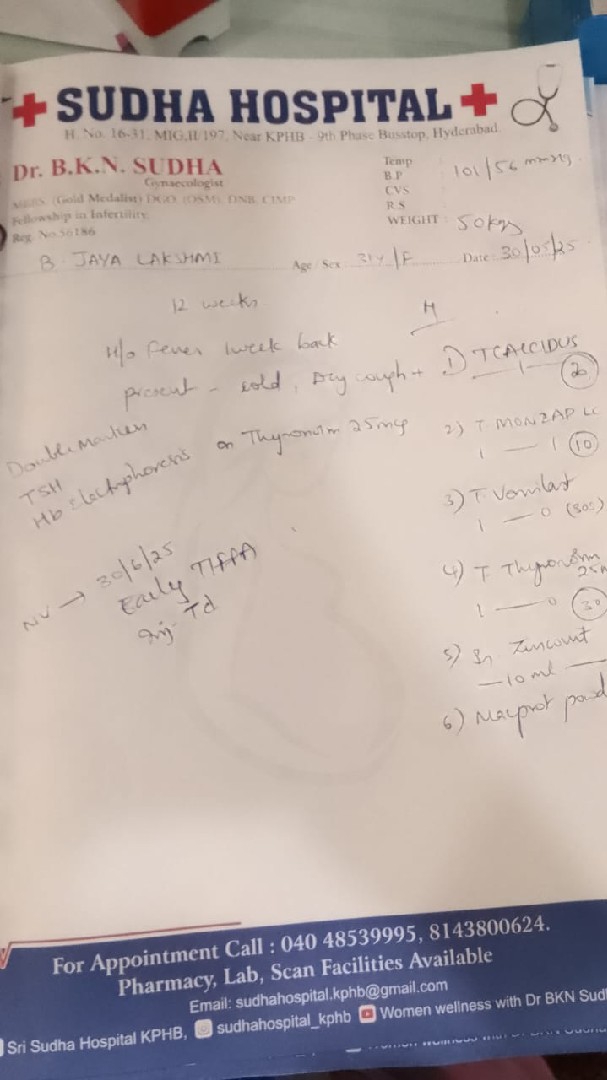 SUDHA HOSPITAL
H. No. 16-31, MIG,II/197, Near KPHB - 9th Phase Busstop, Hyderabad.
Dr. B.K.N. SUDHA
Gynaecologist
MBBS, (Gold Medalist) DGO, (OSM) DNB, CIMP
Fellowship in Infertility
Reg. No.56186
Temp
B.P 101/56 mmHg
CVS
R.S
WEIGHT 50kgs
B. JAYA LAKSHMI Age / Sex 31y/F Date: 30/05/25
12 weeks
H/o fever 1week back
present - cold, Dry cough +
on Thyronorm 25mcg
Double Marker
TSH
Hb Electrophoresis
NV → 30/6/25
Early TIFFA
Inj. Td
1) T CALCIDUS
1
2) T MONZAP LC
1 — 1 10
3) T Vomilast
1 — 0 (SOS)
4) T Thyronorm
1 — 0 30
5)
— 10 ml —
6)
For Appointment Call : 040 48539995, 8143800624.
Pharmacy, Lab, Scan Facilities Available
Email: sudhahospital.kphb@gmail.com
Sri Sudha Hospital KPHB, sudhahospital_kphb Women wellness with Dr BKN Sud